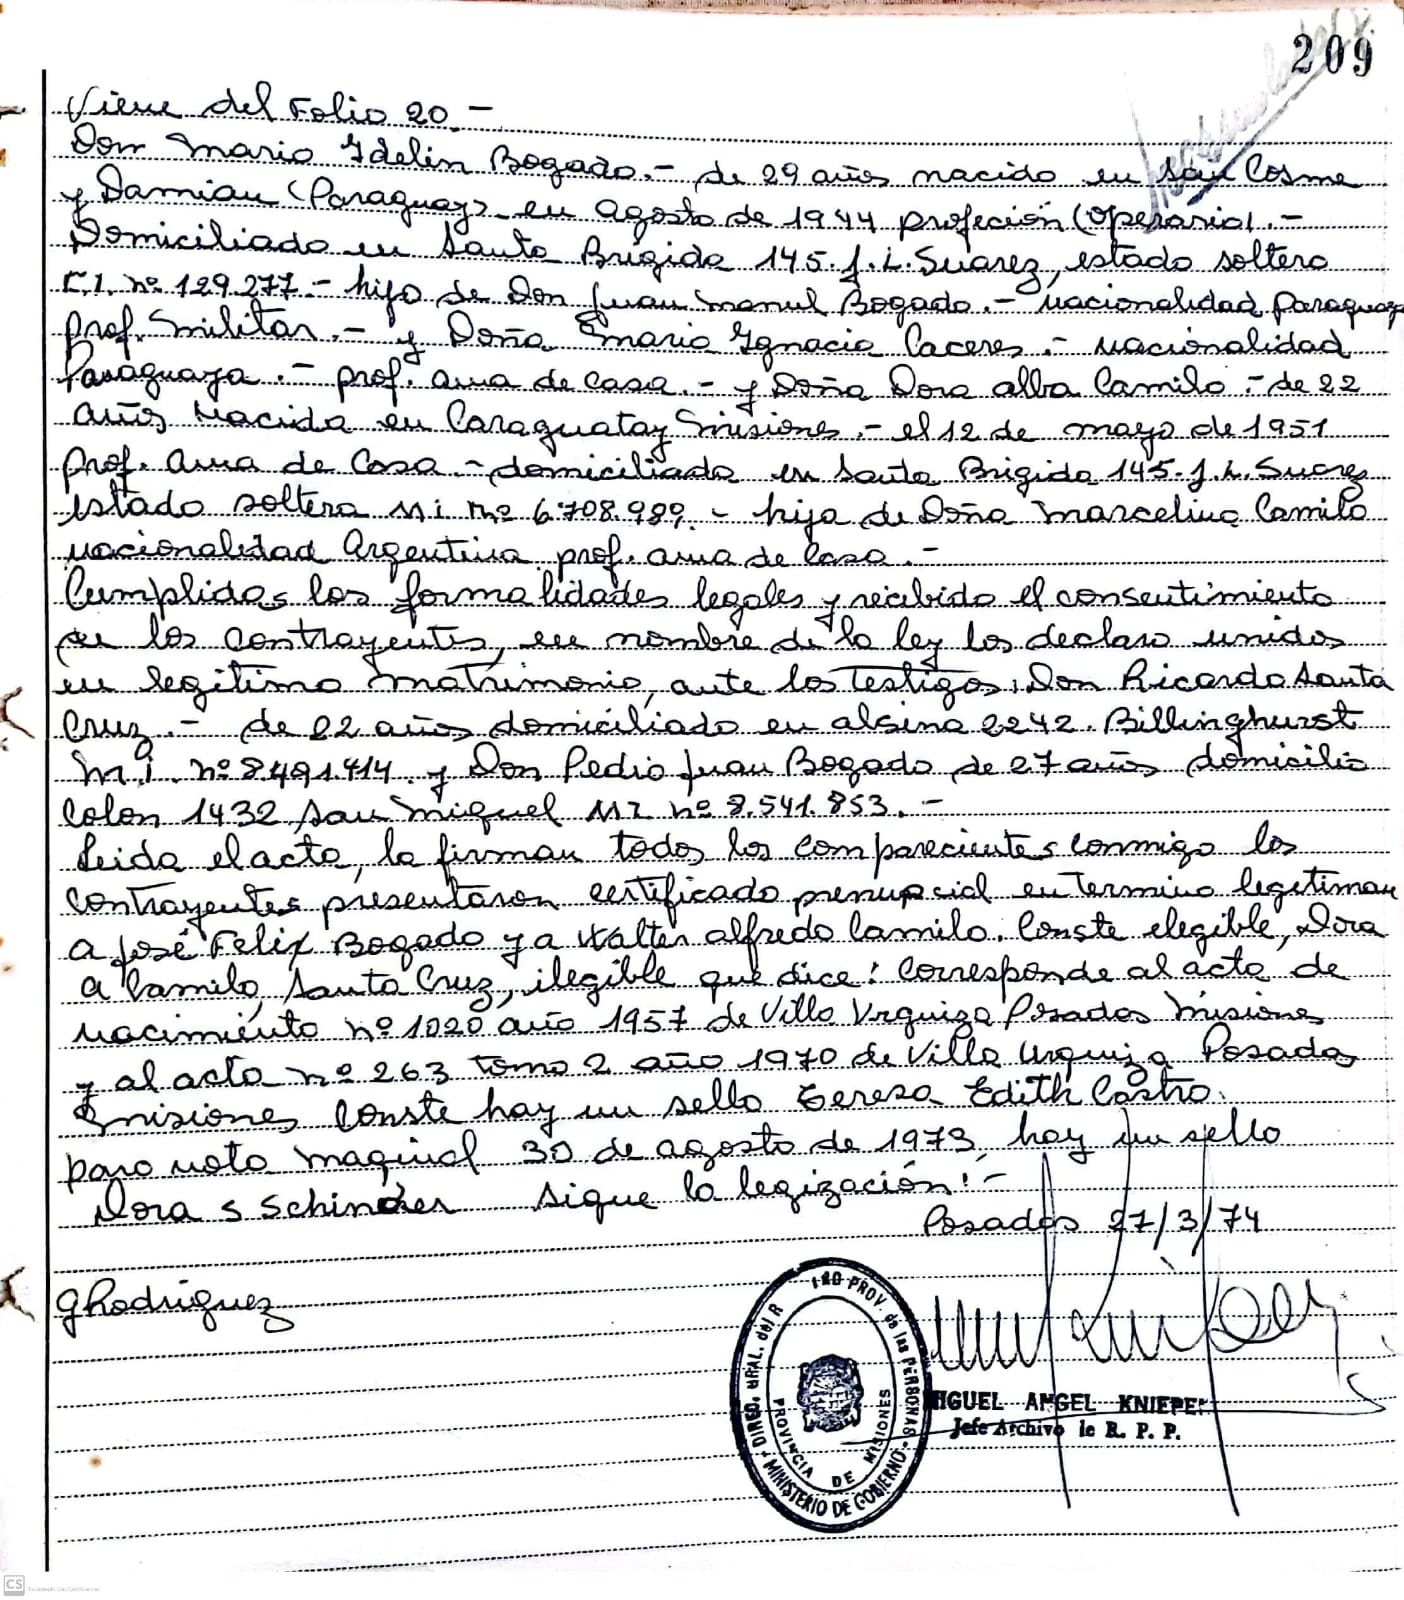 209
Viene del Folio 20.-
Don Mario Idelin Bogado.- de 29 años nacido en San Cosme
y Damian (Paraguay) en agosto de 1944 profeción (operario).-
Domiciliado en Santa Brigida 145. J.L. Suarez, estado soltero
C.I. nº 129.277.- hijo de Don Juan Manul Bogado.- nacionalidad Paraguaya
prof. militar.- y Doña Maria Ignacia Caceres.- nacionalidad
Paraguaya.- prof. ama de casa.- y Doña Dora alba Camilo.- de 22
años Nacida en Caraguatay Misiones.- el 12 de mayo de 1951
prof. ama de Casa.- domiciliada en Santa Brigida 145. J.L. Suarez
estado soltera M i nº 6.708.989.- hija de Doña Marcelina Camilo
nacionalidad Argentina prof. ama de Casa.-
Cumplidas las formalidades legales y recibido el consentimiento
de los contrayentes, en nombre de la ley los declaro unidos
en legitimo matrimonio, ante los testigos, Don Ricardo Santa
Cruz.- de 22 años domiciliado en alsina 2242. Billinghurst
M.i. nº 8491.414. y Don Pedro Juan Bogado de 27 años domicilio
Colon 1432 San Miguel MI nº 8.541.853.-
Leida el acta, la firman todos los comparecientes conmigo los
contrayentes presentaron certificado prenupcial en termino legitiman
a José Felix Bogado y a Walter alfredo Camilo. Conste elegible, Dora
a Camilo, Santa Cruz, ilegible que dice: Corresponde al acta de
nacimiento nº 1020 año 1957 de Villa Urquiza Posadas Misiones
y al acta nº 263 tomo 2 año 1970 de Villa Urquiza Posadas
Misiones Conste hay un sello Teresa Edith Castro.
para nota maginal 30 de agosto de 1973, hay un sello
Dora S Schinder sigue la legización!-
Posadas 27/3/74
G Rodriguez
DIREC. GRAL. del R PROV. de las PERSONAS
MINISTERIO DE GOBIERNO
PROVINCIA DE MISIONES
IGUEL ANGEL KNIEPE
Jefe Archivo de R. P. P.
CS